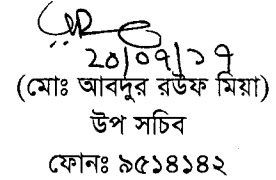 20/07/17
(মোঃ আবদুর রউফ মিয়া)
উপ সচিব
ফোনঃ ৯৫১৪১৪২